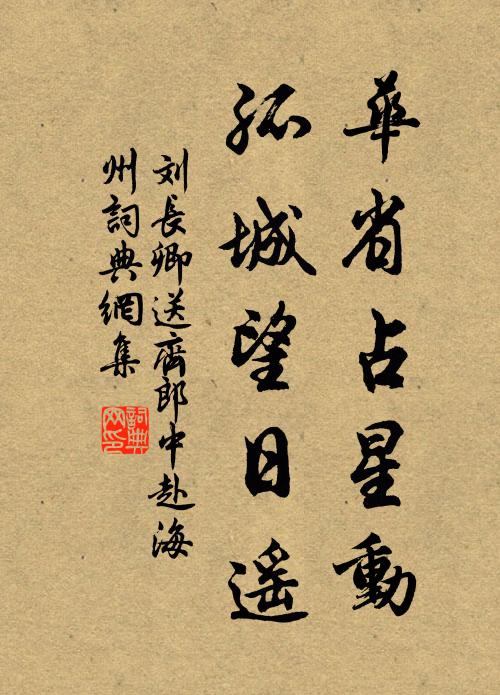 華省占星動
孤城望日遥
刘長卿送齊郎中赴海
州詞典網集
詞典网印